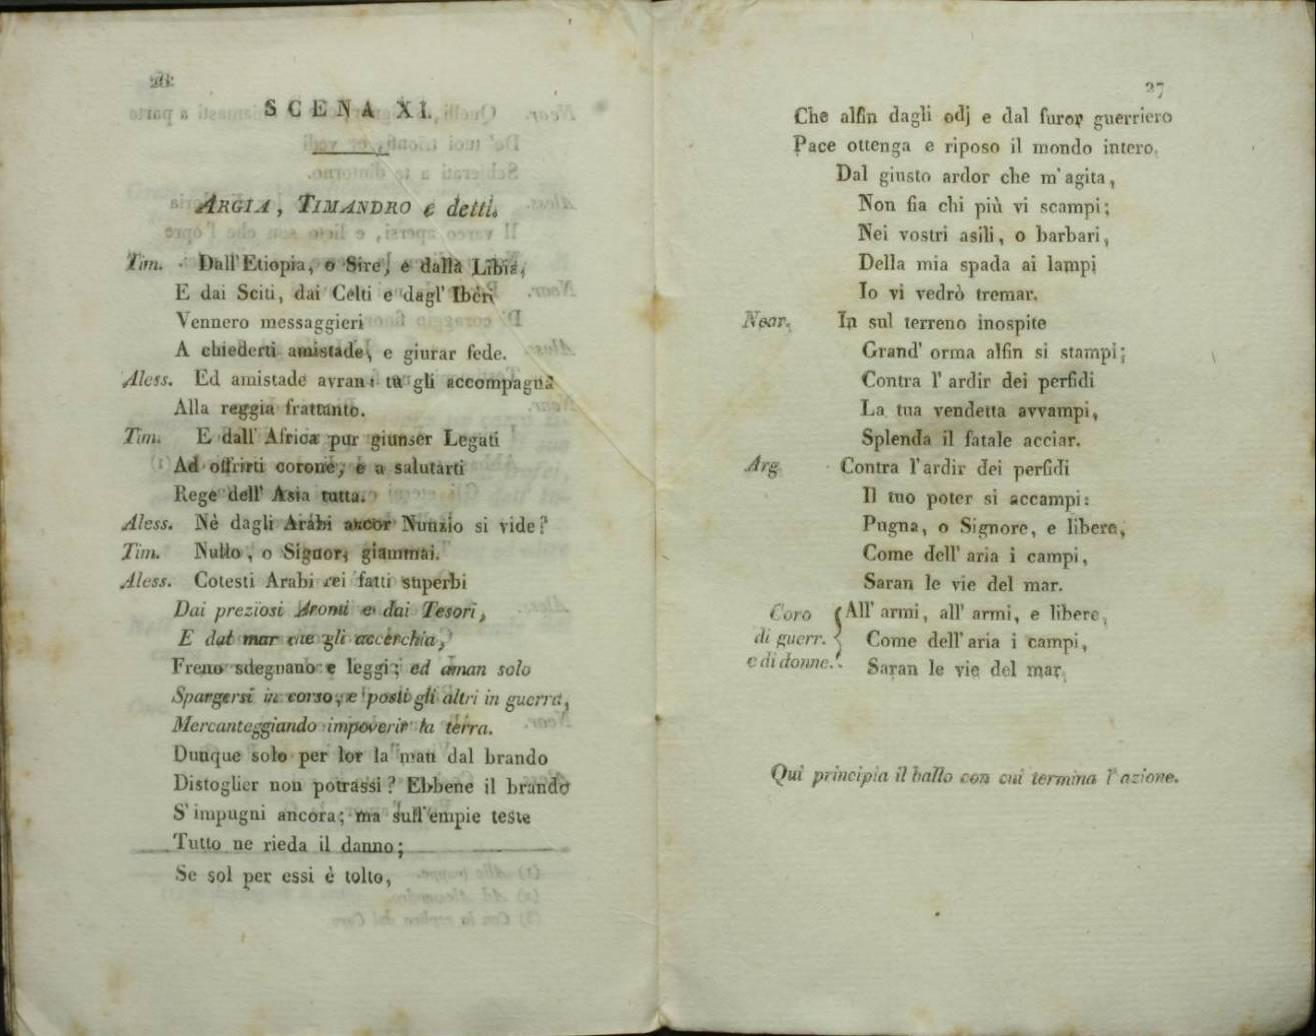 26
SCENA XI.
ARGIA, TIMANDRO e detti.
Tim. Dall'Etiopia, o Sire, e dalla Libia,
E dai Sciti, dai Celti e dagl' Iberi
Vennero messaggieri
A chiederti amistade, e giurar fede.
Aless. Ed amistade avran: tu gli accompagna
Alla reggia frattanto.
Tim. E dall' Africa pur giunser Legati
Ad offrirti corone, e a salutarti
Rege dell' Asia tutta.
Aless. Nè dagli Arabi ancor Nunzio si vide?
Tim. Nullo, o Signor, giammai.
Aless. Cotesti Arabi rei fatti superbi
Dai preziosi Aromi e dai Tesori,
E dal mar che gli accerchia,
Freno sdegnano e leggi; ed aman solo
Spargersi in corso, e posti gli altri in guerra,
Mercanteggiando impoverir la terra.
Dunque solo per lor la man dal brando
Distoglier non potrassi? Ebbene il brando
S' impugni ancora; ma sull'empie teste
Tutto ne rieda il danno;
Se sol per essi è tolto,
27
Che alfin dagli odj e dal furor guerriero
Pace ottenga e riposo il mondo intero.
Dal giusto ardor che m'agita,
Non fia chi più vi scampi;
Nei vostri asili, o barbari,
Della mia spada ai lampi
Io vi vedrò tremar.
Near. In sul terreno inospite
Grand' orma alfin si stampi;
Contra l' ardir dei perfidi
La tua vendetta avvampi,
Splenda il fatale acciar.
Arg. Contra l'ardir dei perfidi
Il tuo poter si accampi:
Pugna, o Signore, e libere,
Come dell' aria i campi,
Saran le vie del mar.
Coro { All' armi, all' armi, e libere,
di guerr. Come dell'aria i campi,
e di donne. Saran le vie del mar.
Qui principia il ballo con cui termina l'azione.